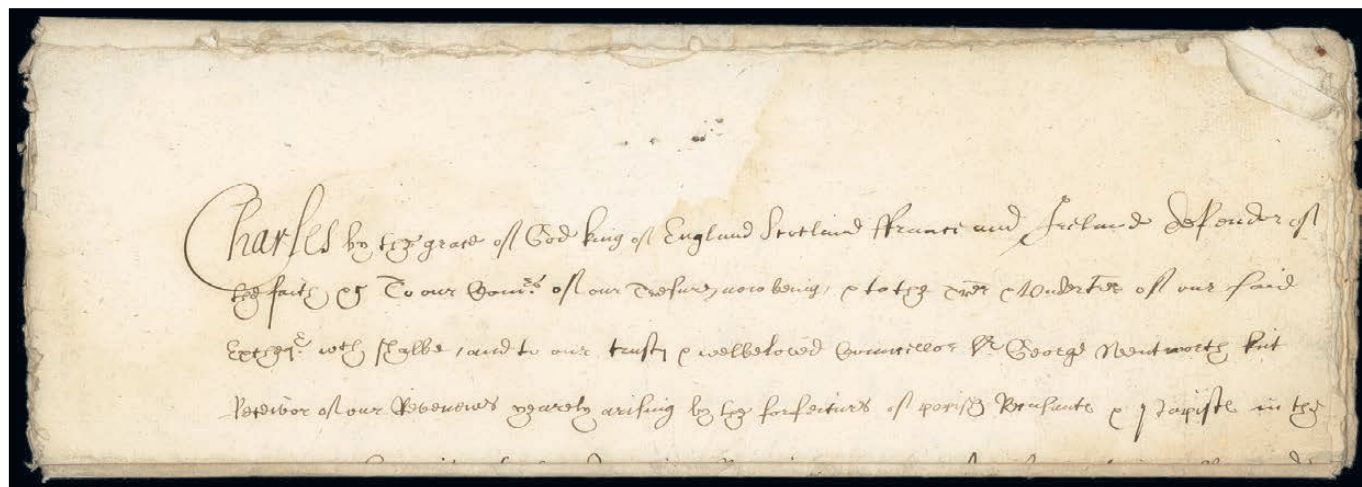 Charles by the grace of God king of England Scotland ffrance and Ireland defender of
the faith &c To our Comrs of our Tresury now being, & to the Trer & Undertrer of our said
Excheqr wch shalbe, and to our trusty & welbeloved Councellor Sr George Wentworth knt
Receivor of our Revenews yearely arising by the forfeiturs of popish Recusants & papists in the